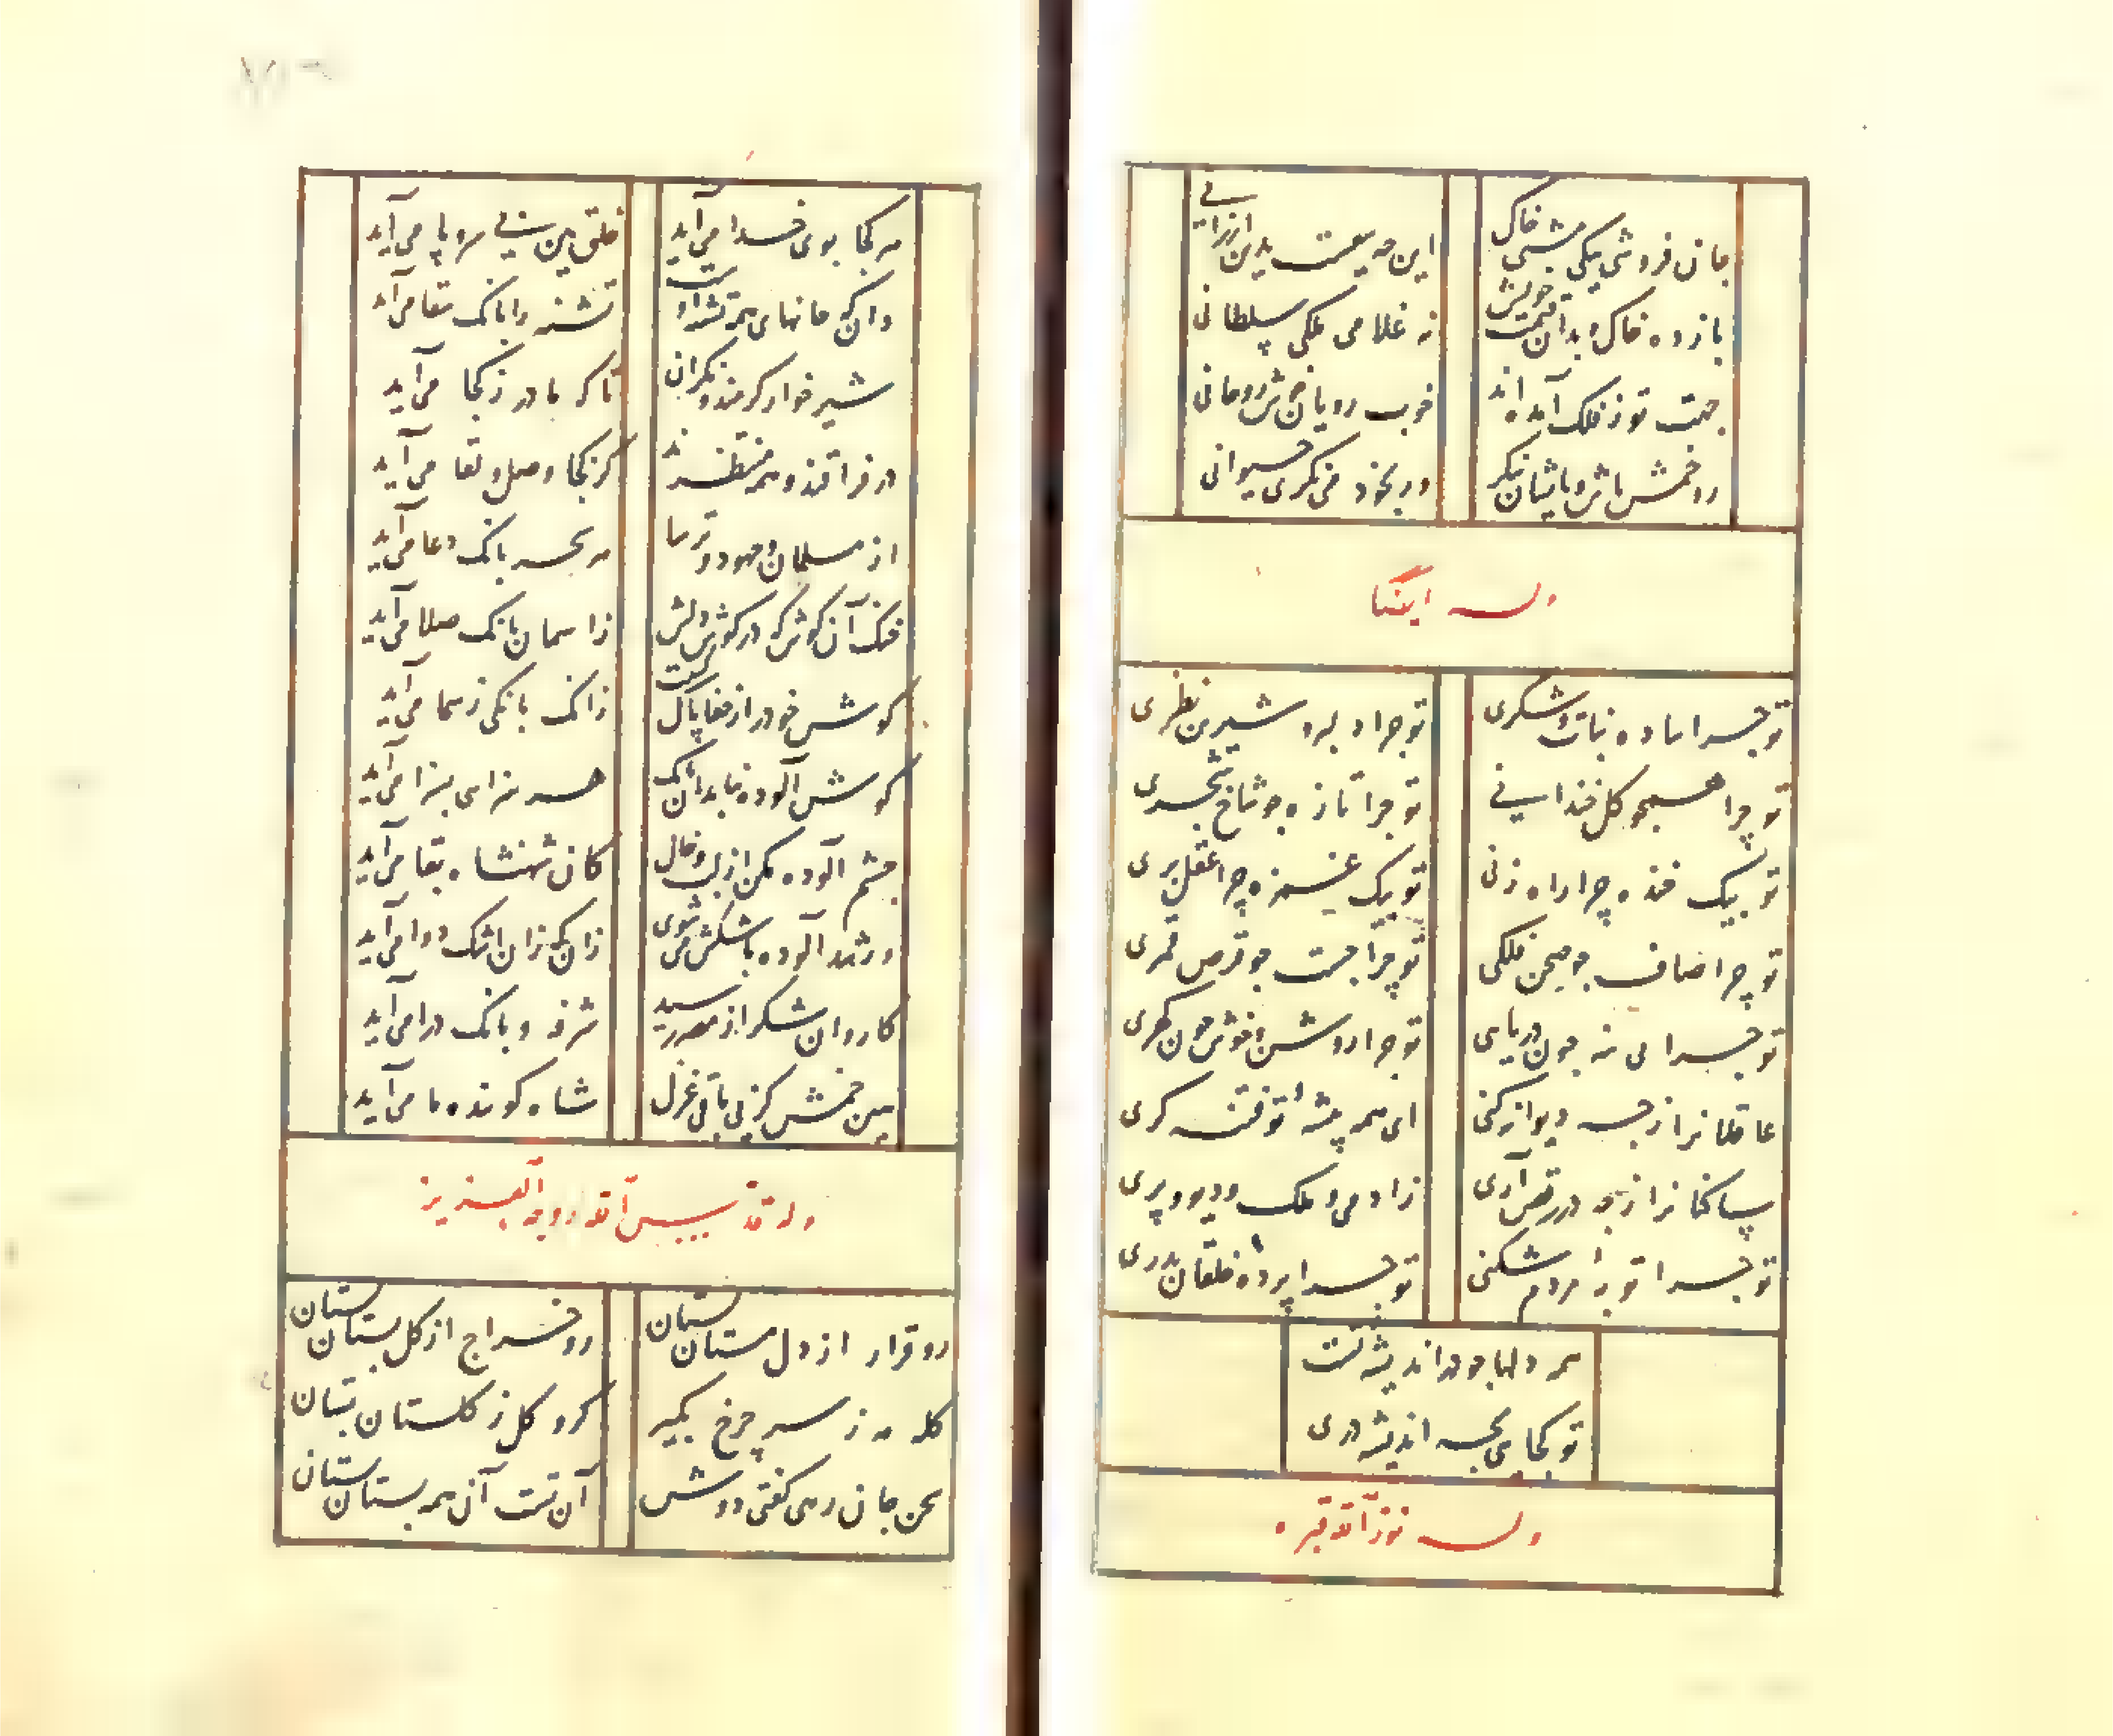 جان فروشی بیکی مشتی خاک
این چه بیعست بدین ارزانیی
بازده خاک و بدان قیمت خویش
نه غلامی ملکی سلطانی
جهت تو ز فلک آمده اند
خوب رویان خوش روحانی
رو خمش باش و باایشان بنگر
ور بخود می نگری حیوانی
وله ایضا
تو چرا ساده نبات و شکری
تو چرا دلبر و شیرین نظری
تو چرا همچو گل خندانیی
تو چرا تازه چو شاخ شجری
تو بیک خنده چرا راه زنی
تو بیک غمزه چرا عقل بری
تو چرا صاف چو صحن فلکی
تو چرا چست چو قرص قمری
تو چرا بی بنه چون دریایی
تو چرا روشن و خوش چون گهری
عاقلانرا ز چه دیوانه کنی
ای همه پیشه تو فتنه گری
ساکنانرا ز چه در رقص آری
ز آدمی و ملک و دیو و پری
تو چرا توبه مردم شکنی
تو چرا پرده خلقان بدری
همه دلها چو در اندیشه تست
تو کجایی بچه اندیشه دری
وله نور الله قبره
هر کجا بوی خدا می آید
خلق بین بی سر و پا می آید
زانک جانهای همه تشنه اوست
تشنه را بانگ سقا می آید
شیرخوار کرمند و نگران
تا که مادر ز کجا می آید
در فراقند و همه منتظرند
کز کجا وصل و لقا می آید
از مسلمان و جهود و ترسا
هر سحر بانگ دعا می آید
خنک آن گوش که در گوش دلش
ز اسمان بانگ صلا می آید
گوش خود را ز جفا پاک کنیت
زانک بانگی ز سما می آید
گوش آلوده نیابد آن بانگ
هر سزایی بسزا می آید
چشم آلوده مکن از لب و خال
کان شهنشاه بقا می آید
ور شد آلوده باشکش می شوی
زانک زان اشک دوا می آید
کاروان شکر از مصر رسید
شرفه و بانگ درا می آید
هین خمش کز پی باقی غزل
شاه گوینده ما می آید
وله قدس الله روحه العزیز
رو قرار از دل مستان بستان
رو خراج از گل بستان بستان
کله مه ز سر چرخ بگیر
گرو گل ز گلستان بستان
سخن جان رهی گفتی دوش
آن تست آن همه بستان بستان